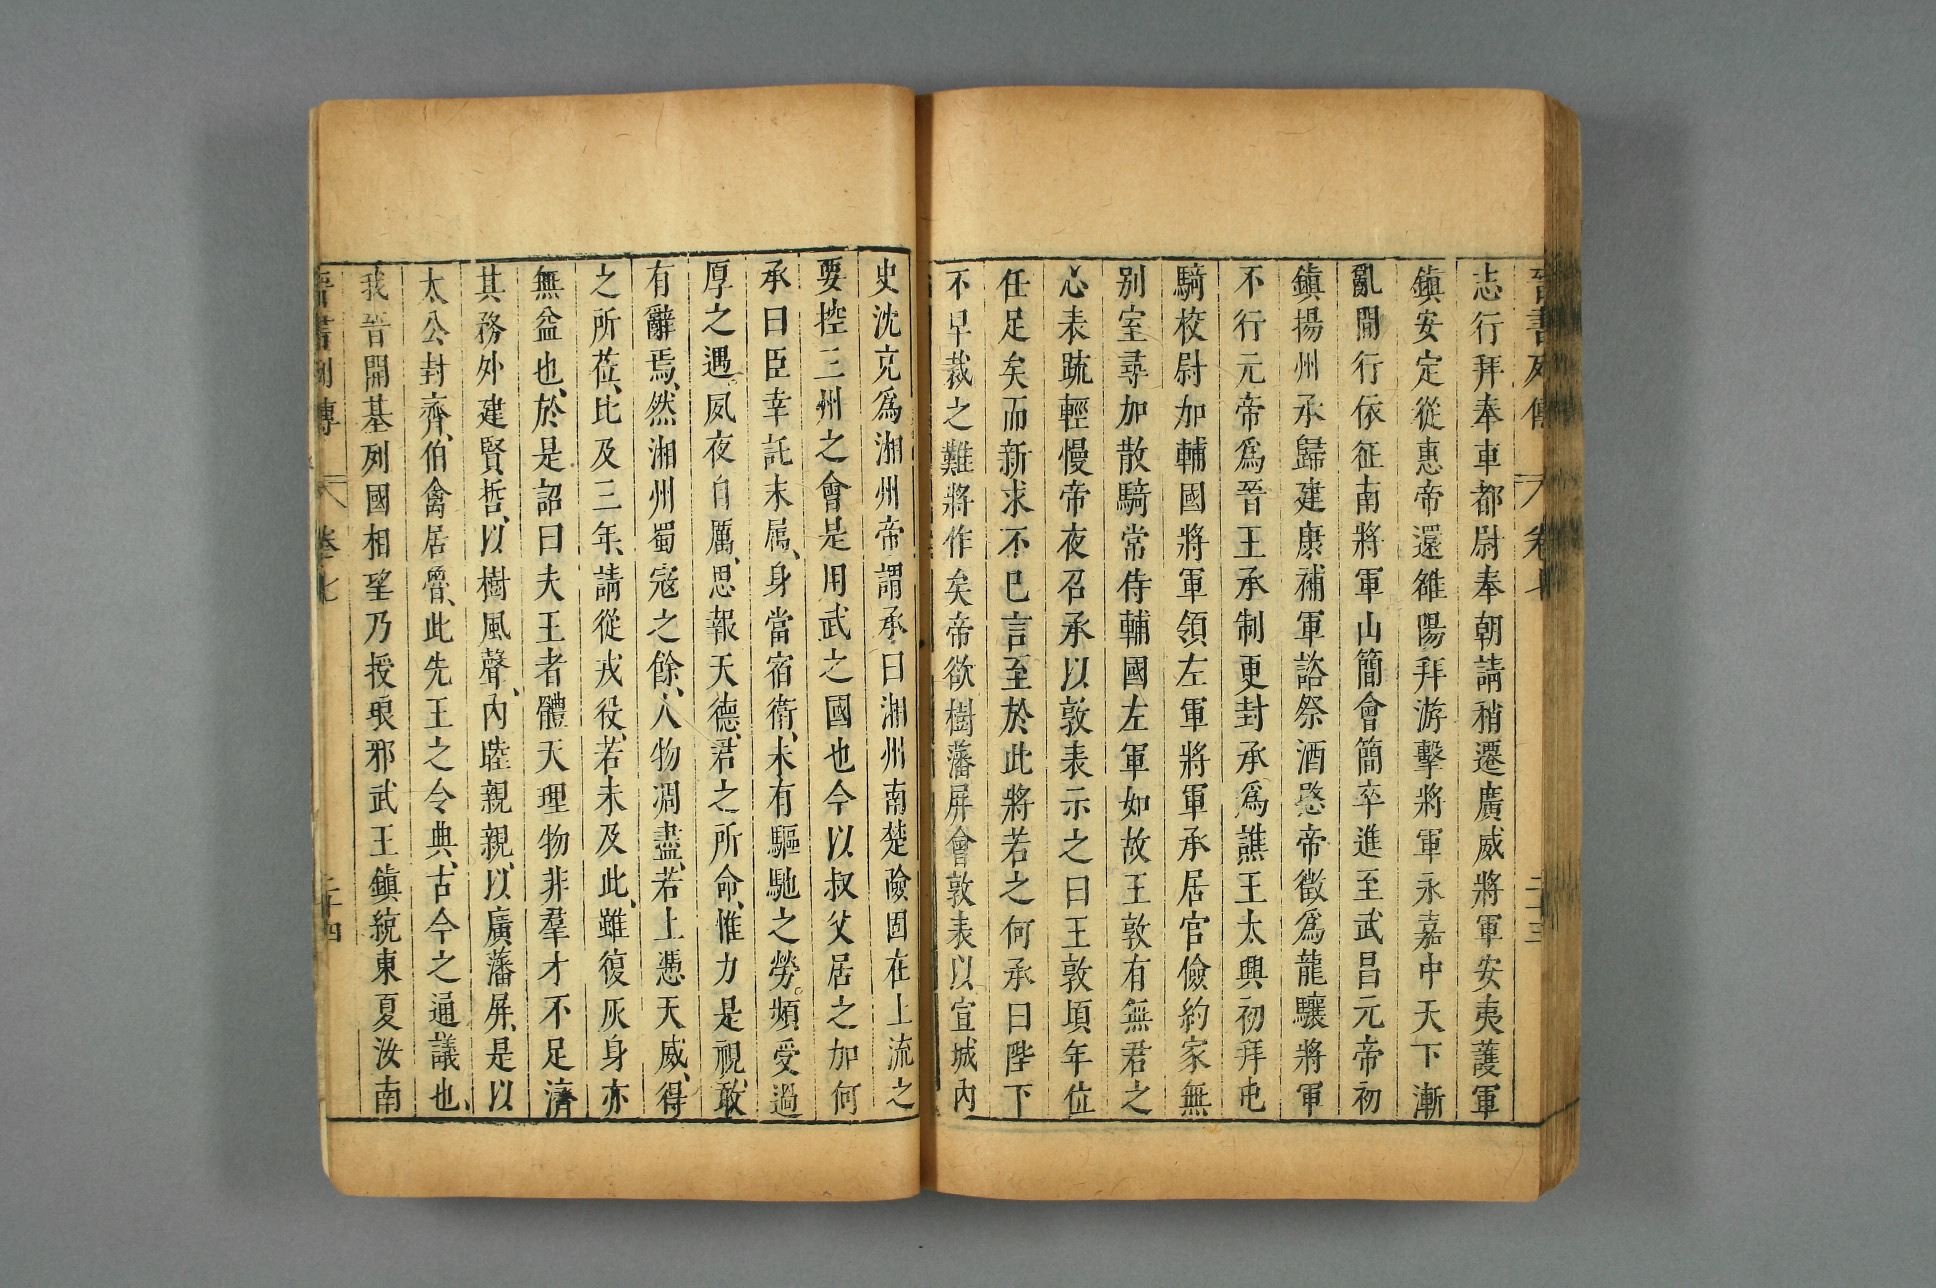 晉書列傳 八 卷七 二十三
志行拜奉車都尉奉朝請稍遷廣威將軍安夷護軍
鎮安定從惠帝還雒陽拜游擊將軍永嘉中天下漸
亂間行依征南將軍山簡會簡卒進至武昌元帝初
鎮揚州承歸建康補軍諮祭酒愍帝徵爲龍驤將軍
不行元帝爲晉王承制更封承爲譙王太興初拜屯
騎校尉加輔國將軍領左軍將軍承居官儉約家無
别室尋加散騎常侍輔國左軍如故王敦有無君之
心表疏輕慢帝夜召承以敦表示之曰王敦頃年位
任足矣而新求不已言至於此將若之何承曰陛下
不早裁之難將作矣帝欲樹藩屏會敦表以宣城內
史沈充爲湘州帝謂承曰湘州南楚險固在上流之
要控三州之會是用武之國也今以叔父居之加何
承曰臣幸託末屬、身當宿衛、未有驅馳之勞。頻受過
厚之遇。夙夜自厲、思報天德、君之所命、惟力是視、敢
有辭焉、然湘州蜀寇之餘、人物凋盡、若上憑天威、得
之所莅、比及三年、請從戎役、若未及此、雖復灰身亦
無益也、於是詔曰夫王者體天理物非羣才不足濟
其務外建賢哲、以樹風聲、內睦親親、以廣藩屏、是以
太公封齊、伯禽居魯、此先王之令典、古今之通議也、
我晉開基列國相望乃授琅邪武王鎮統東夏汝南
晉書列傳 八 卷七 二十四